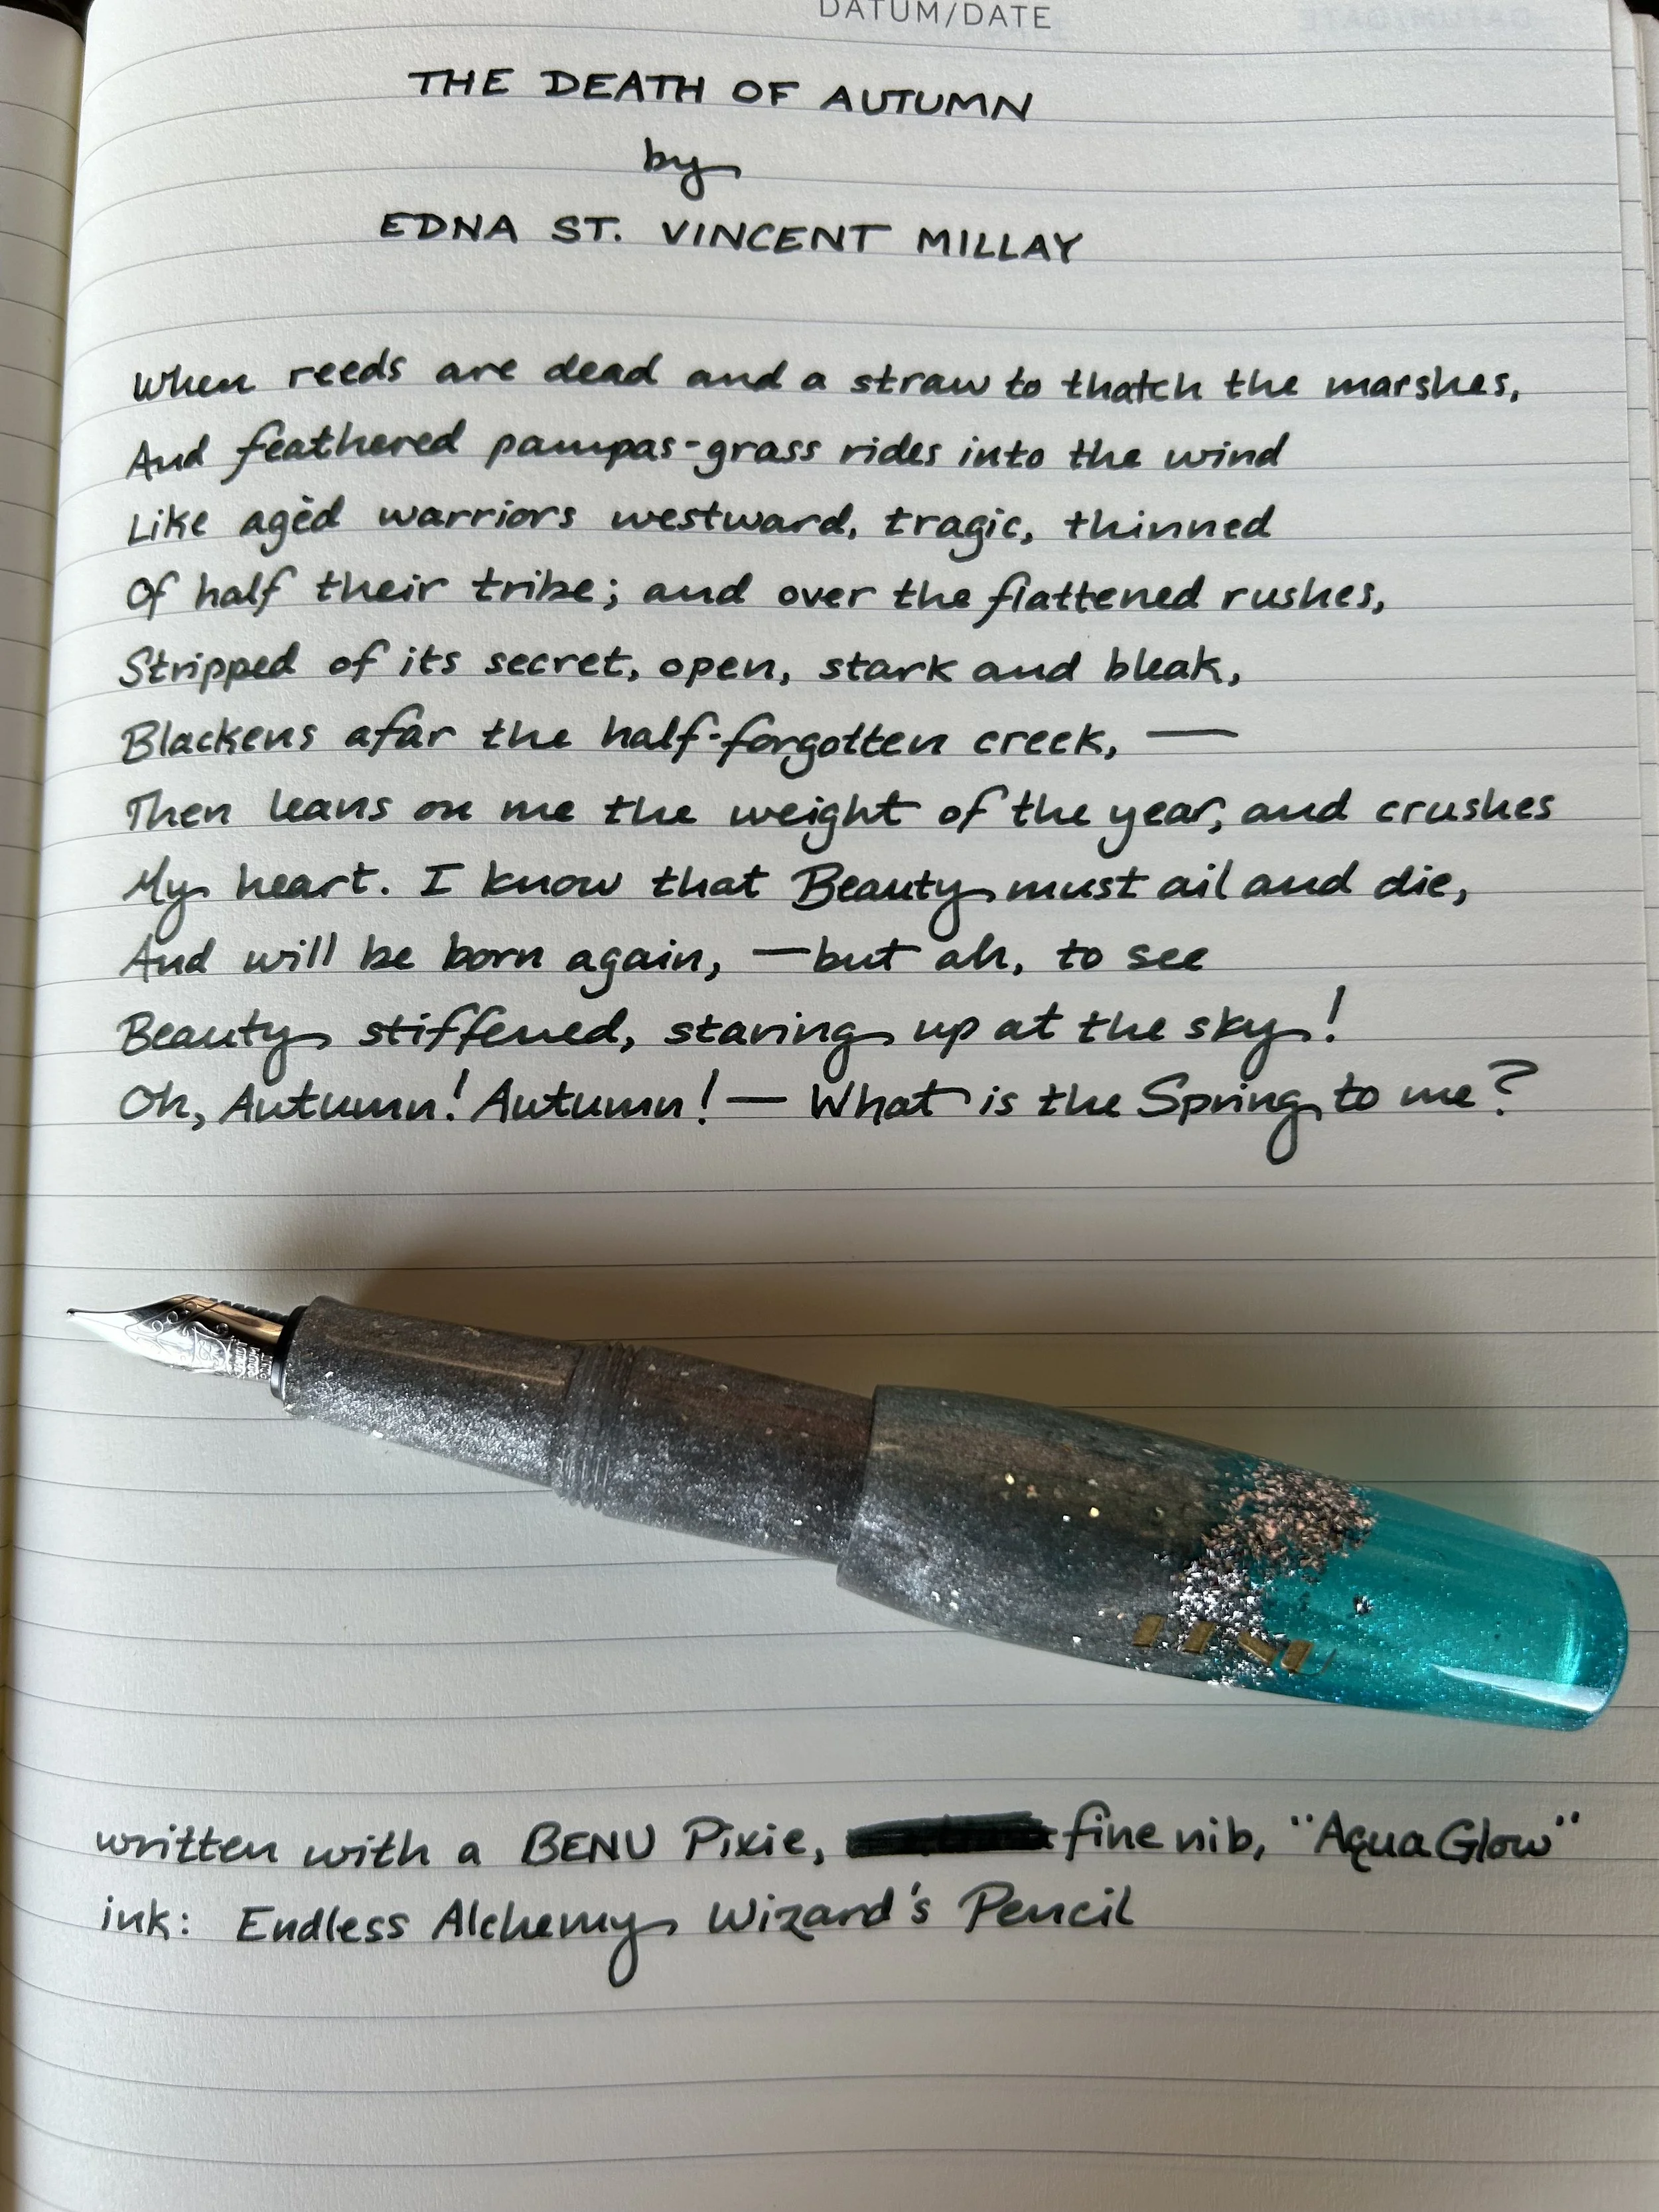 DATUM/DATE
THE DEATH OF AUTUMN
by
EDNA ST. VINCENT MILLAY
When reeds are dead and a straw to thatch the marshes,
And feathered pampas-grass rides into the wind
Like agèd warriors westward, tragic, thinned
Of half their tribe; and over the flattened rushes,
Stripped of its secret, open, stark and bleak,
Blackens afar the half-forgotten creek, —
Then leans on me the weight of the year, and crushes
My heart. I know that Beauty must ail and die,
And will be born again, —but ah, to see
Beauty stiffened, staring up at the sky!
Oh, Autumn! Autumn! — What is the Spring to me?
BENU
written with a BENU Pixie, fine nib, "Aqua Glow"
ink: Endless Alchemy Wizard's Pencil